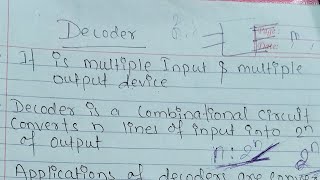 Decoder
n
It is multiple Input & multiple
output device
Decoder is a Combinational circuit
Converts n lines of input into 2ⁿ
of output
n : 2ⁿ 2ⁿ
Applications of decoders are